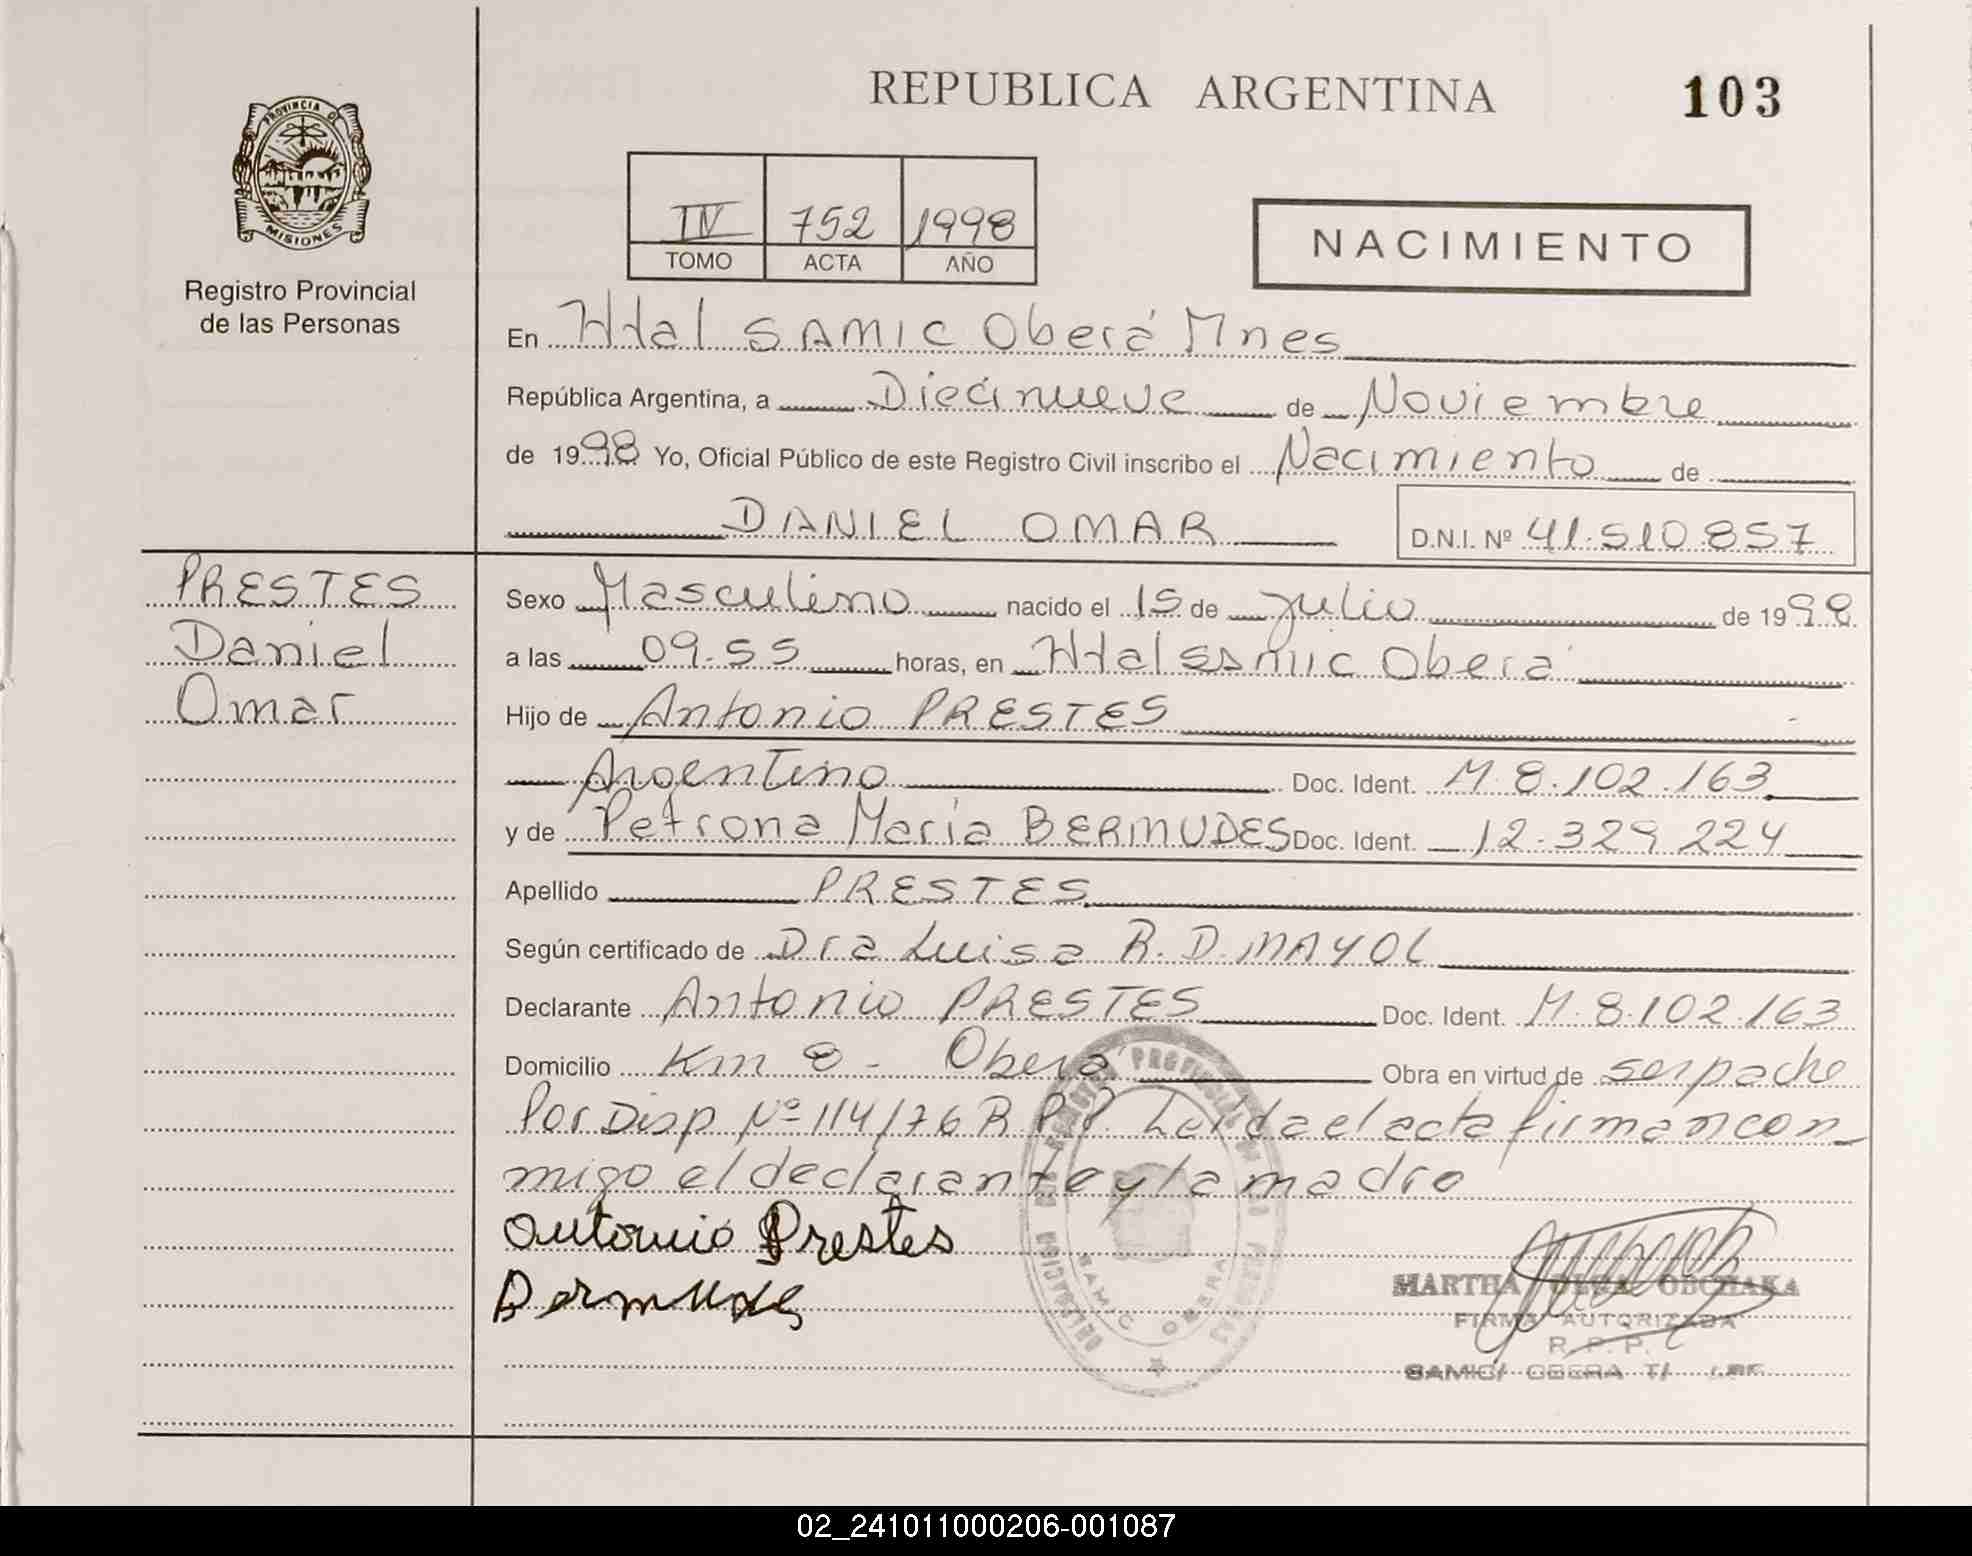 REPUBLICA ARGENTINA
103
PROVINCIA D
MISIONES
Registro Provincial
de las Personas
IV 752 1998
TOMO ACTA AÑO
NACIMIENTO
En Htal SAMIC Oberá Mnes
República Argentina, a Diecinueve de Noviembre
de 1998 Yo, Oficial Público de este Registro Civil inscribo el Nacimiento de
DANIEL OMAR D.N.I. Nº 41.510.857
PRESTES
Daniel
Omar
Sexo Masculino nacido el 15 de Julio de 1998
a las 09.55 horas, en Htal SAMIC Oberá
Hijo de Antonio PRESTES
Argentino Doc. Ident. M. 8.102.163
y de Petrona María BERMUDES Doc. Ident. 12.329.224
Apellido PRESTES
Según certificado de Dra Luisa R. D. MAYOL
Declarante Antonio PRESTES Doc. Ident. M. 8.102.163
Domicilio Km 8 - Oberá Obra en virtud de
Por Disp Nº 114/76 R.P.P. Leída el acta firman con
migo el declarante y la madre
Antonio Prestes
Bermudes
SAMIC OBERA
MARTHA OLGA
FIRMA AUTORIZADA
R. P. P.
SAMIC/ OBERA
02_241011000206-001087